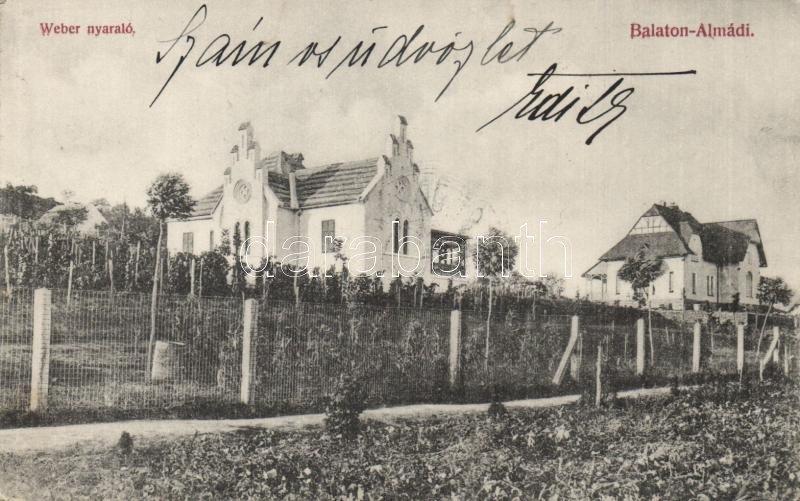 Weber nyaraló,
Balaton-Almádi.
Számos üdvözlet
Edith
darabanth.com